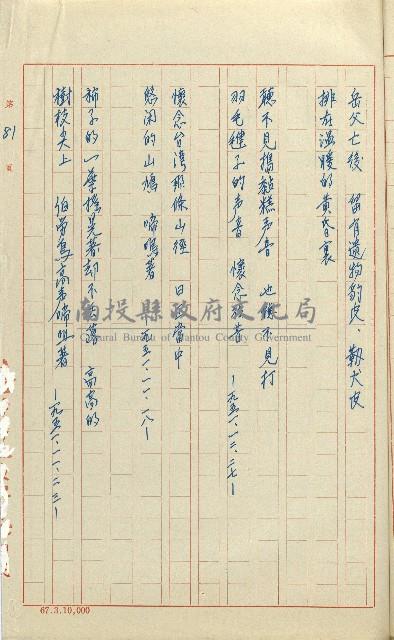 岳父亡後 留有遺物豹皮、鞣犬皮
排在溫暖的黃昏裏
聽不見搗黏糕声音 也聽不見打
羽毛毽子的声音 懷念故昔
—一九五一、一二、二七—
懷念台灣那條山徑 日當中
悠闲的山鳩 啼鳴著
一九五一、一一、一八—
柿子的一葉搖晃著却不凋落 高高的
樹枝尖上 伯勞鳥高声啼叫著
—一九五一、一一、二三—
第 81 頁
南投縣政府文化局
Cultural Bureau of Nantou County Government
67.3.10,000